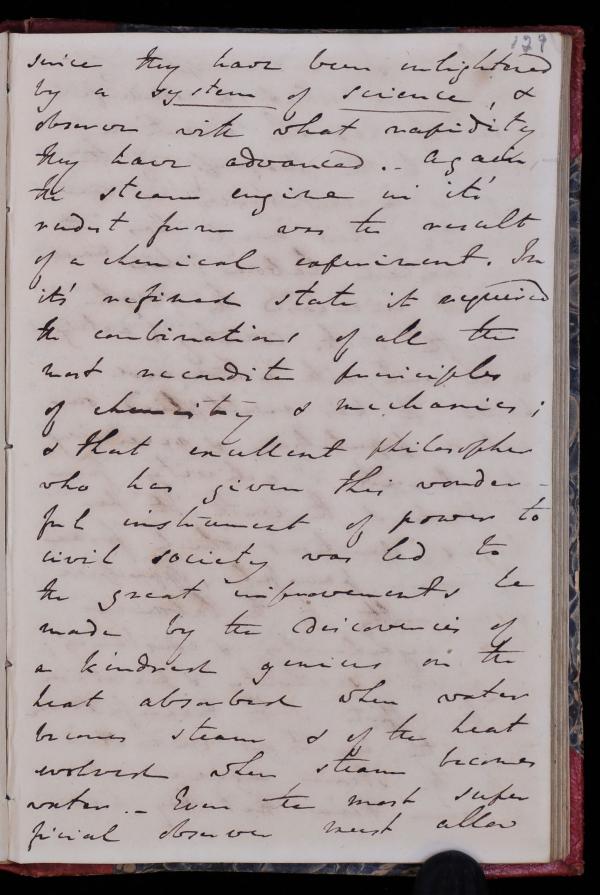 129
since they have been enlightened
by a system of science, &
observe with what rapidity
they have advanced.- Again
the steam engine in it's
rudest form was the result
of a chemical experiment. In
it's refined state it required
the combinations of all the
most recondite principles
of chemistry & mechanics;
& that excellent philosopher
who has given this wonder-
ful instrument of power to
civil society was led to
the great improvements he
made by the discoveries of
a kindred genius on the
heat absorbed when water
becomes steam & of the heat
evolved when steam becomes
water.- Even the most super
ficial observer must allow